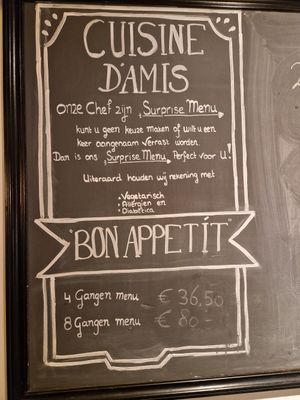 CUISINE
D'AMIS
onze Chef zijn Surprise Menu
kunt u geen keuze maken of wilt u een
keer aangenaam Verrast worden.
Dan is ons Surprise Menu Perfect voor U!
Uiteraard houden wij rekening met
• Vegetarisch
• Allergien en
• Diabetica
"BON APPETÍT"
4 Gangen menu € 36,50
8 Gangen menu € 80-